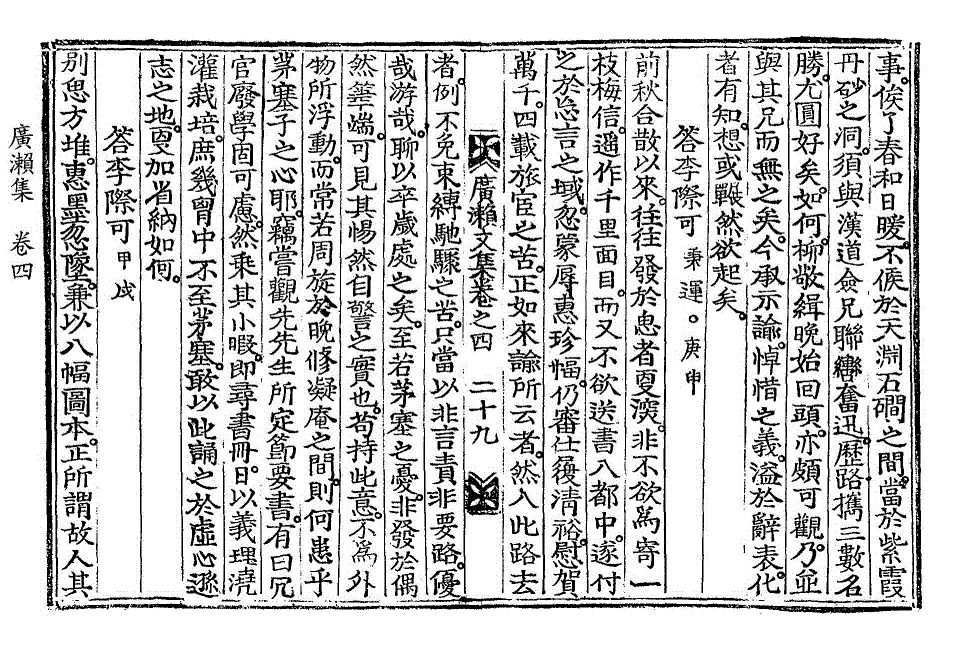 事。俟了春和日暖。不候於天淵石磵之間。當於紫霞
丹砂之洞。須與漢道僉兄聯轡奮迅。歷路攜三數名
勝。尤圓好矣。如何。柳敬緝晩始回頭。亦頗可觀。乃並
與其兄而無之矣。今承示諭。悼惜之義。溢於辭表。化
者有知。想或囅然欲起矣。
答李際可 秉運。庚申
前秋合散以來。往往發於忠者夏深。非不欲爲寄一
枝梅信。遥作千里面目。而又不欲送書八都中。遂付
之於忘言之域。忽蒙辱惠珍幅。仍審仕履淸裕。慰賀
萬千。四載旅宦之苦。正如來諭所云者。然入此路去
廣瀨文集卷之四 二十九
者。例不免束縛馳驟之苦。只當以非言責非要路。優
哉游哉。聊以卒歲處之矣。至若茅塞之憂。非發於偶
然筆端。可見其惕然自警之實也。苟持此意。不爲外
物所浮動。而常若周旋於晩修凝庵之間。則何患乎
茅塞子之心耶。竊嘗觀先先生所定節要書。有曰冗
官廢學固可慮。然乘其小暇。卽尋書冊。日以義理澆
灌栽培。庶幾胷中不至茅塞。敢以此誦之於虛心遜
志之地。更加省納如何。
答李際可 甲戌
別思方堆。惠墨忽墜。兼以八幅圖本。正所謂故人其
廣瀨集 卷四